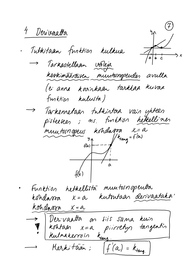 7
4 Derivaatta
- Tutkitaan funktion kulkua
→ Tarkastellaan väleja
keskimääräisen muutosnopeuden avulla
(ei anna kovinkaan tarkkaa kuvaa
funktion kulusta)
→ Tarkemmin tutkintaa vain yhteen
pisteeseen; ns. funktion hetkellinen
muutosnopeus kohdassa x=a
- Funktion hetkellistä muutosnopeutta
kohdassa x=a kutsutaan derivaataksi
kohdassa x=a
→ Derivaatta on siis sama kuin
kohtaan x=a piirretyn tangentin
kulmakerroin
→ Merkitään: f'(a) =